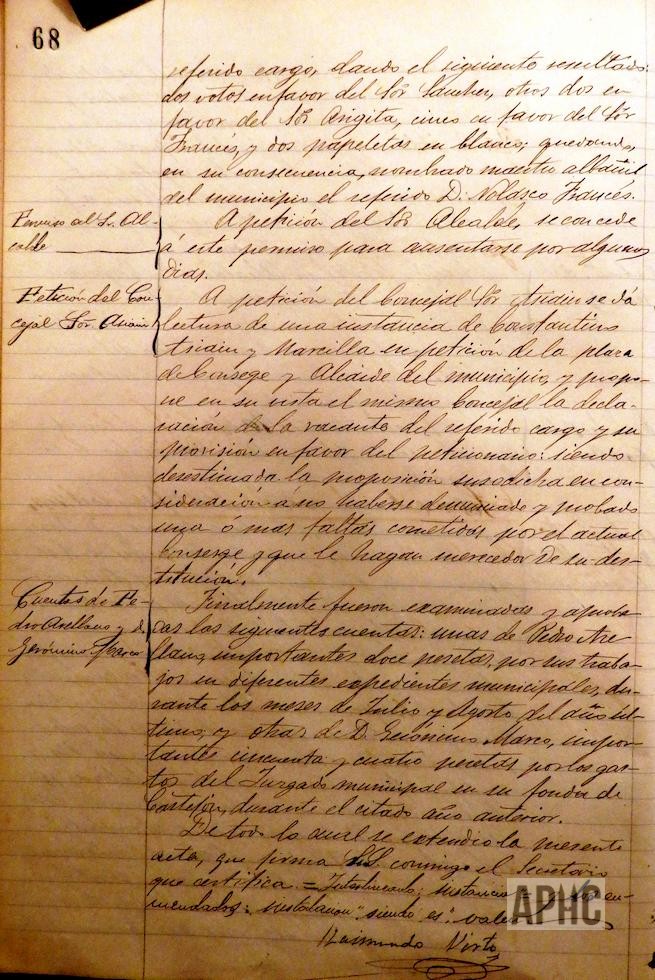 68
referido cargo, dando el siguiente resultado:
dos votos en favor del Sor Sanches, otros dos en
favor del Sor Angita, cinco en favor del Sor
Francés, y dos papeletas en blanco; quedando,
en su consecuencia, nombrado maestro albañil
del municipio el referido D. Nolasco Francés.
Permiso al Sr. Al-
calde
A petición del Sor Alcalde, se concede
á este permiso para ausentarse por algunos
dias.
Petición del Con-
cejal Sor. Asiain
A petición del Concejal Sor Asiain se dá
lectura de una instancia de Constantino
Asiain y Marcilla en petición de la plaza
de Conserge y Alcaide del municipio, y propo-
ne en su vista el mismo Concejal la decla-
ración de la vacante del referido cargo y su
provisión en favor del peticionario: siendo
desestimada la proposición susodicha en con-
sideración á no haberse denunciado y probado
una ó mas faltas cometidas por el actual
Conserge y que le hagan merecedor de su des-
titución.
Cuentas de Pe-
dro Arellano y D.
Gerónimo Marco
Finalmente fueron examinadas y aproba-
das las siguientes cuentas: unas de Pedro Are-
llano, importantes doce pesetas, por sus traba-
jos en diferentes expedientes municipales, du-
rante los meses de Julio y Agosto del año úl-
timo; y otras de D. Gerónimo Marco, impor-
tantes cincuenta y cuatro pesetas por los gas-
tos del Juzgado municipal en su fonda de
Castejón, durante el citado año anterior.
De todo lo cual se extendió la presente
acta, que firma S.S. conmigo el Secretario
que certifica. = Interlineado: instancia
en-
mendados: siendo es: valen
APHC
Raimundo Virto